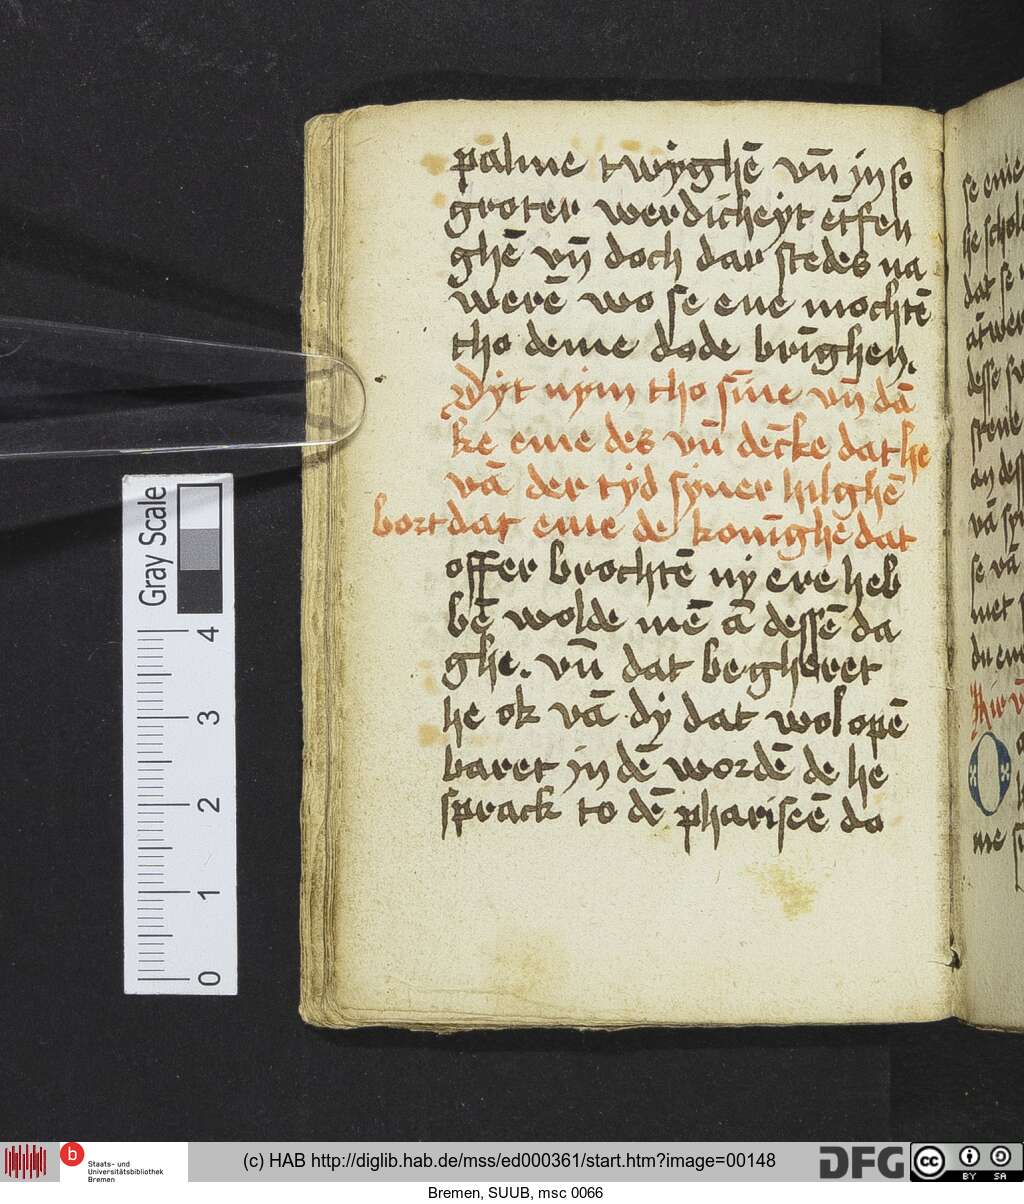 palme twyghē vn̄ in so
groter werdicheyt ētfen
ghē vn̄ doch dar stedes na
werē wo se ene mochtē
tho deme dode brīghen.
Dyt nym tho sīne vn̄ dā
ke eme des vn̄ dēcke dat he
vā der tyd syner hilghē
bort dat eme de konīghe dat
offer brochtē ny ere heb
bē wolde mē ā dessē da
ghe. vn̄ dat begheret
he ok vā dy dat wol opē
baret in dē wordē de he
sprack to dē phariseē do
se eme
he schol
dat se
desse
stene
an dess
se vā
met
Hir
O
me
Gray Scale
4
3
2
1
0
b Staats- und
Universitätsbibliothek
Bremen
(c) HAB http://diglib.hab.de/mss/ed000361/start.htm?image=00148
DFG
cc BY SA
Bremen, SUUB, msc 0066